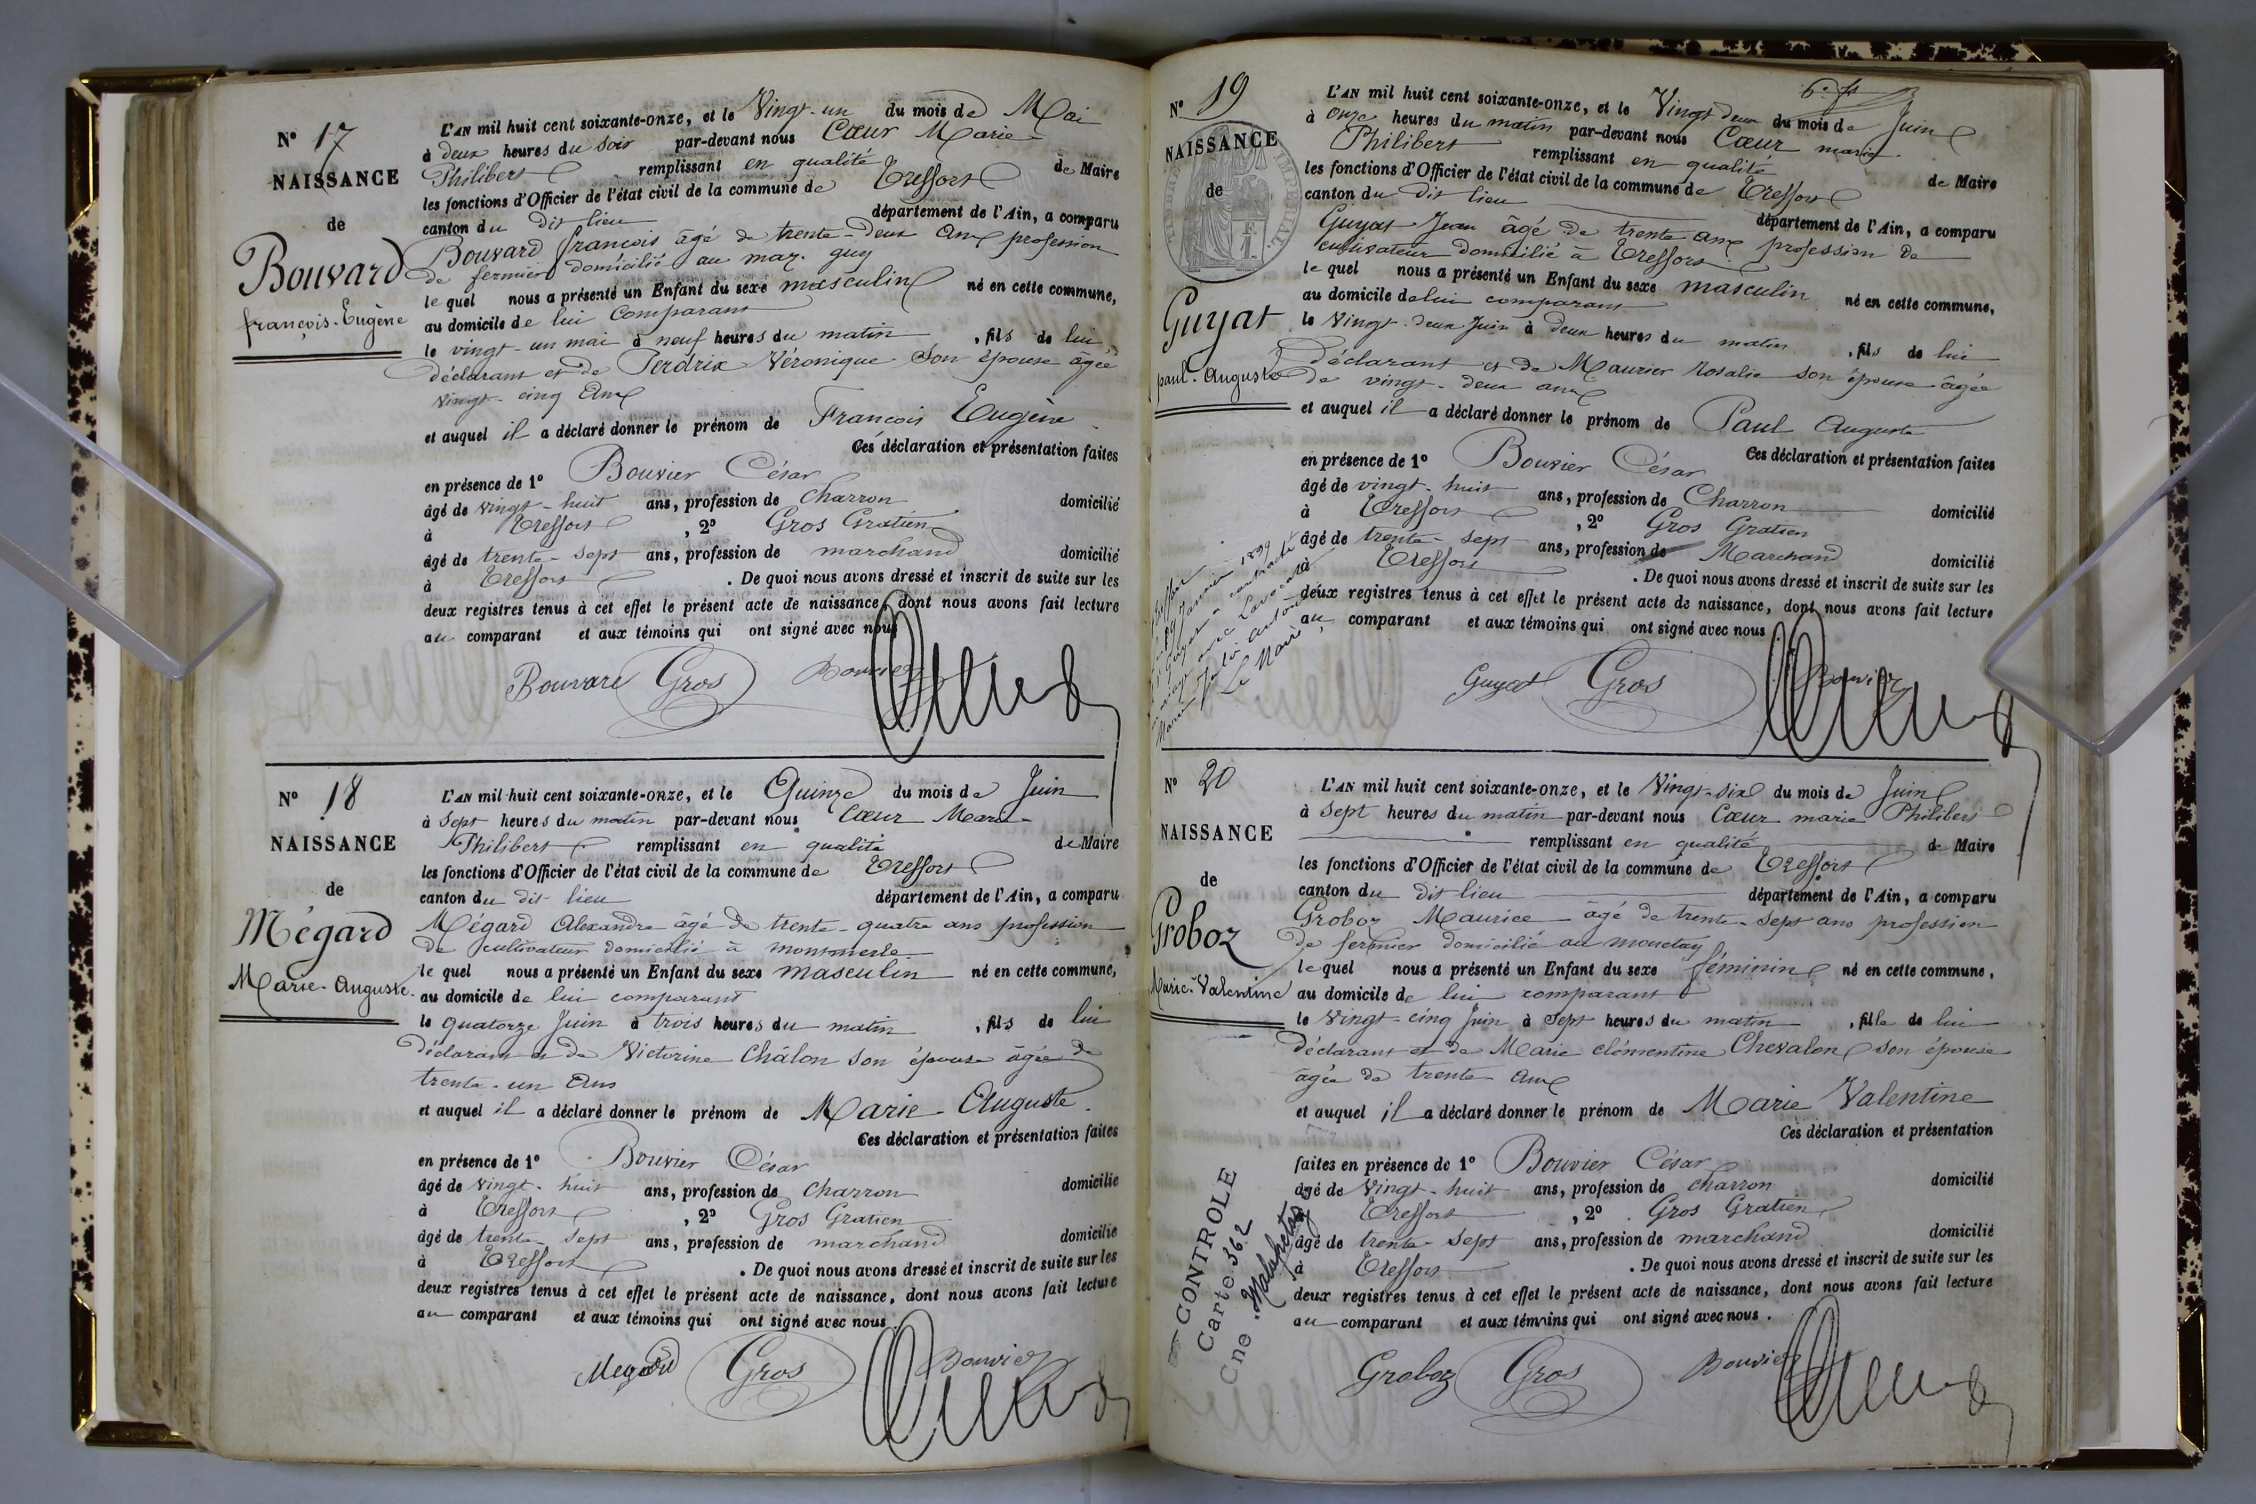 N° 17
NAISSANCE
de
Bouvard
françois-Eugène
L'AN mil huit cent soixante-onze, et le Vingt-un du mois de Mai
à deux heures du soir par-devant nous Cœur Marie-
Philibert remplissant en qualité de Maire
les fonctions d'Officier de l'état civil de la commune de Treffort
canton du dit lieu département de l'Ain, a comparu
Bouvard françois âgé de trente-deux ans profession
de fermier domicilié au maz-guy
le quel nous a présenté un Enfant du sexe masculin né en cette commune,
au domicile de lui Comparant
le vingt-un mai à neuf heures du matin , fils de lui
déclarant et de Perdrix Véronique son épouse âgée
vingt-cinq ans
et auquel il a déclaré donner le prénom de François Eugène
Ces déclaration et présentation faites
en présence de 1° Bouvier César
âgé de vingt-huit ans, profession de charron domicilié
à Treffort , 2° Gros Gratien
âgé de trente-sept ans, profession de marchand domicilié
à Treffort . De quoi nous avons dressé et inscrit de suite sur les
deux registres tenus à cet effet le présent acte de naissance, dont nous avons fait lecture
au comparant et aux témoins qui ont signé avec nous
Bouvard Gros Bouvier
N° 18
NAISSANCE
de
Mégard
Marie-Auguste
L'AN mil huit cent soixante-onze, et le Quinze du mois de Juin
à sept heures du matin par-devant nous Cœur Marie-
Philibert remplissant en qualité de Maire
les fonctions d'Officier de l'état civil de la commune de Treffort
canton du dit lieu département de l'Ain, a comparu
Mégard Alexandre âgé de trente-quatre ans profession
de cultivateur domicilié à montmerle
le quel nous a présenté un Enfant du sexe masculin né en cette commune,
au domicile de lui comparant
le quatorze Juin à trois heures du matin , fils de lui
déclarant et de Victorine Châlon son épouse âgée de
trente-un ans
et auquel il a déclaré donner le prénom de Marie-Auguste.
Ces déclaration et présentation faites
en présence de 1° Bouvier César
âgé de vingt-huit ans, profession de charron domicilié
à Treffort , 2° Gros Gratien
âgé de trente-sept ans, profession de marchand domicilié
à Treffort . De quoi nous avons dressé et inscrit de suite sur les
deux registres tenus à cet effet le présent acte de naissance, dont nous avons fait lecture
au comparant et aux témoins qui ont signé avec nous.
Megard Gros Bouvier
N° 19
NAISSANCE
de
Guyat
paul-Auguste
L'AN mil huit cent soixante-onze, et le Vingt deux du mois de Juin
à onze heures du matin par-devant nous Cœur marie
Philibert remplissant en qualité de Maire
les fonctions d'Officier de l'état civil de la commune de Treffort
canton du dit lieu département de l'Ain, a comparu
Guyat Jean âgé de trente ans profession de
cultivateur domicilié à Treffort
le quel nous a présenté un Enfant du sexe masculin né en cette commune,
au domicile de lui comparant
le Vingt-deux Juin à deux heures du matin , fils de lui
déclarant et de Maurier Rosalie son épouse âgée
de vingt-deux ans
et auquel il a déclaré donner le prénom de Paul Auguste
Ces déclaration et présentation faites
en présence de 1° Bouvier César
âgé de vingt-huit ans, profession de Charron domicilié
à Treffort , 2° Gros Gratien
âgé de trente-sept ans, profession de Marchand domicilié
à Treffort . De quoi nous avons dressé et inscrit de suite sur les
deux registres tenus à cet effet le présent acte de naissance, dont nous avons fait lecture
au comparant et aux témoins qui ont signé avec nous
Guyat Gros Bouvier
Janvier 1899
Guyat a contracté
mariage avec
Le Maire
N° 20
NAISSANCE
de
Groboz
Marie-Valentine
L'AN mil huit cent soixante-onze, et le Vingt-six du mois de Juin
à sept heures du matin par-devant nous Cœur marie Philibert
remplissant en qualité de Maire
les fonctions d'Officier de l'état civil de la commune de Treffort
canton du dit lieu département de l'Ain, a comparu
Groboz Maurice âgé de trente-sept ans profession
de fermier domicilié au monetay
le quel nous a présenté un Enfant du sexe féminin né en cette commune,
au domicile de lui comparant
le vingt-cinq Juin à sept heures du matin , fille de lui
déclarant et de Marie clémentine Chevalon son épouse
âgée de trente ans
et auquel il a déclaré donner le prénom de Marie Valentine
Ces déclaration et présentation
faites en présence de 1° Bouvier César
âgé de Vingt-huit ans, profession de charron domicilié
Treffort , 2° Gros Gratien
âgé de trente-sept ans, profession de marchand domicilié
à Treffort . De quoi nous avons dressé et inscrit de suite sur les
deux registres tenus à cet effet le présent acte de naissance, dont nous avons fait lecture
au comparant et aux témoins qui ont signé avec nous.
Groboz Gros Bouvier
CONTROLE
Carte 362
Cne.